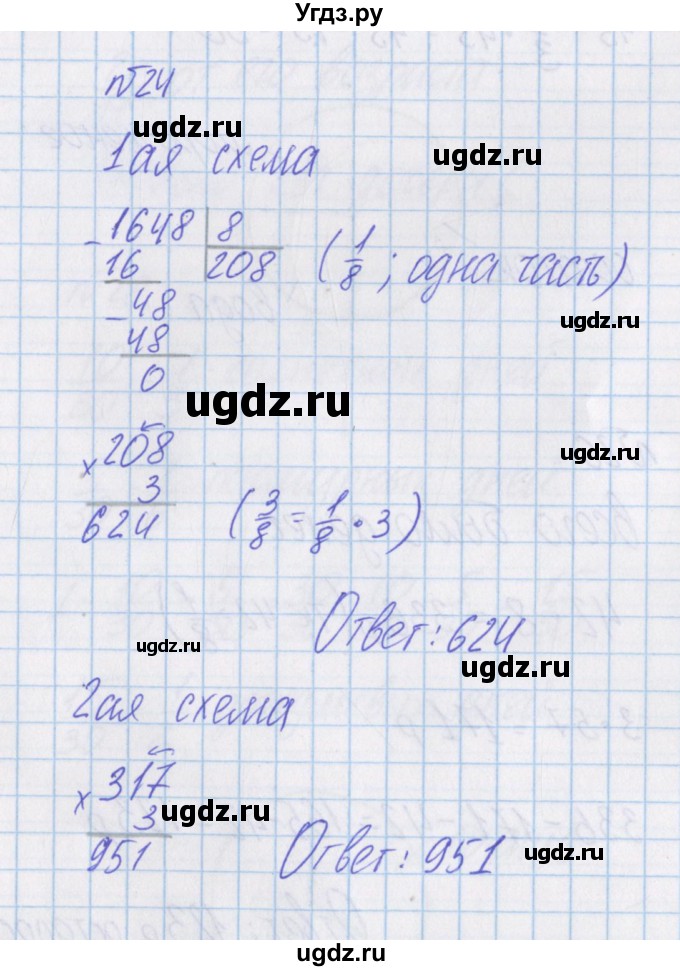 Угдз.ру
№24
ugdz.ru
1ая схема
ugdz.ru
1648 | 8
- 16 208 (1/8 ; одна часть)
- 48
ugdz.ru
48
0
ugdz.ru
× 208
ugdz.ru
3
624 (3/8 = 1/8 · 3)
Ответ: 624
ugdz.ru
ugdz.ru
2ая схема
× 317
ugdz.ru
3
951 Ответ: 951
ugdz.ru
ugdz.ru